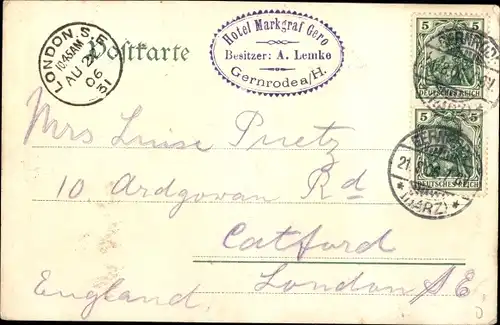 LONDON. S.E.
10.45AM
AU 24
06
31
Postkarte
Hotel Markgraf Gero
Besitzer: A. Lemke
Gernrode a/H.
5 5
DEUTSCHES REICH
(HARZ)
5 5
GERNRODE
21.
DEUTSCHES REICH
* (HARZ) *
Mrs Louise Puetz
10 Ardgowan Rd
Catford
London S E
England.